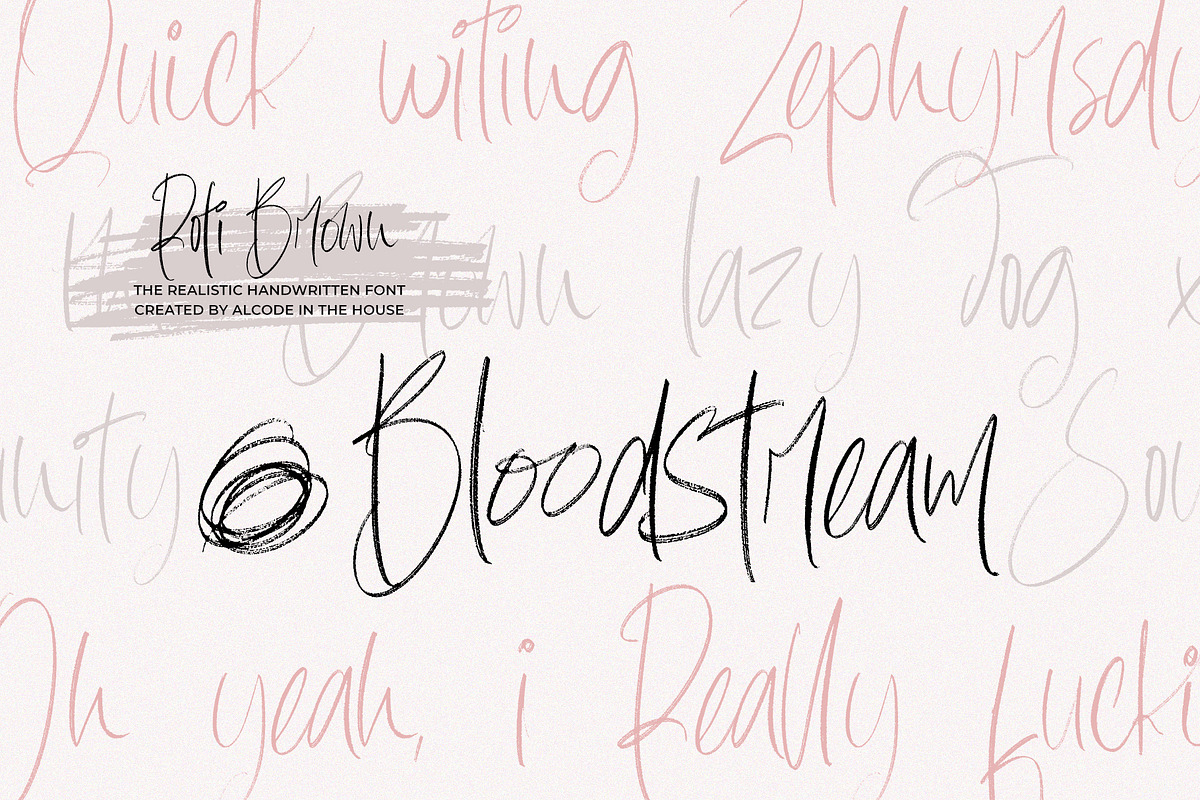 Quick witing Zephyrsdy
Roti Brown
THE REALISTIC HANDWRITTEN FONT
CREATED BY ALCODE IN THE HOUSE
Brown lazy Dog x
Bloodstream
Oh yeah, i Really